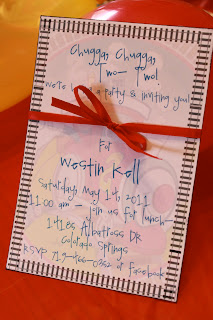 Chugga Chugga
Two— Two!
We're a party & inviting you!
For
Westin Kell
Saturday, May 14, 2011
11:00 am — join us for lunch—
Albatross DR
Colorado Springs
RSVP or Facebook